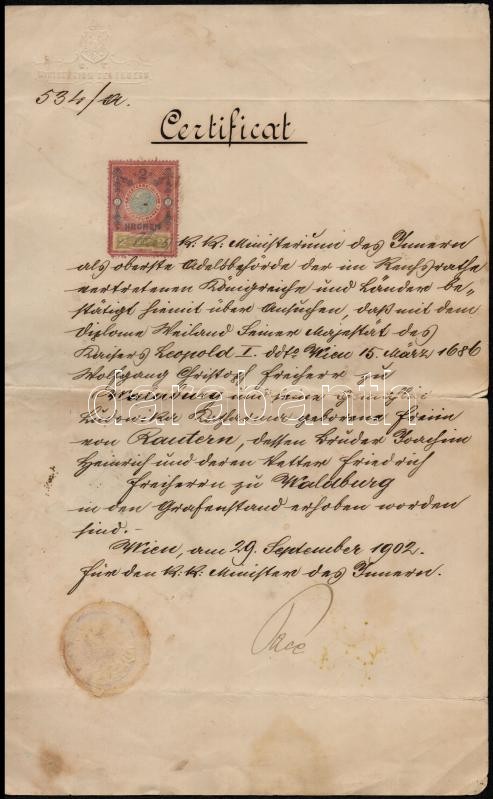 K. K.
MINISTERIUM DES INNERN
534/A.
Certificat
2
KRONEN
K. K. Ministerium des Innern
als oberste Adelsbehörde der im Reichsrathe
vertretenen Königreiche und Länder be-
stätigt hiemit über Ansuchen, daß mit dem
Diplome Weiland Seiner Majestät des
Kaisers Leopold I. ddto Wien 15. März 1686
Wolfgang Christoph Freiherr zu
Waldburg und seine Gemahlin
Ludovika Katharina geborene Freiin
von Rautern, dessen Bruder Joachim
Heinrich und deren Vetter Friedrich
Freiherrn zu Waldburg
in den Grafenstand erhoben worden
sind.-
Wien, am 29. September 1902.
Für den K. K. Minister des Innern.
darabanth